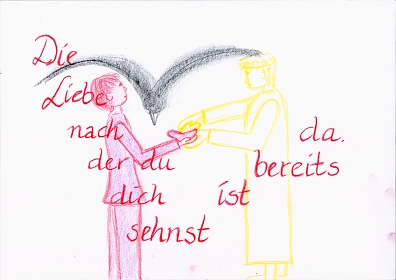 Die
Liebe
nach
der du
dich
sehnst
ist
bereits
da.